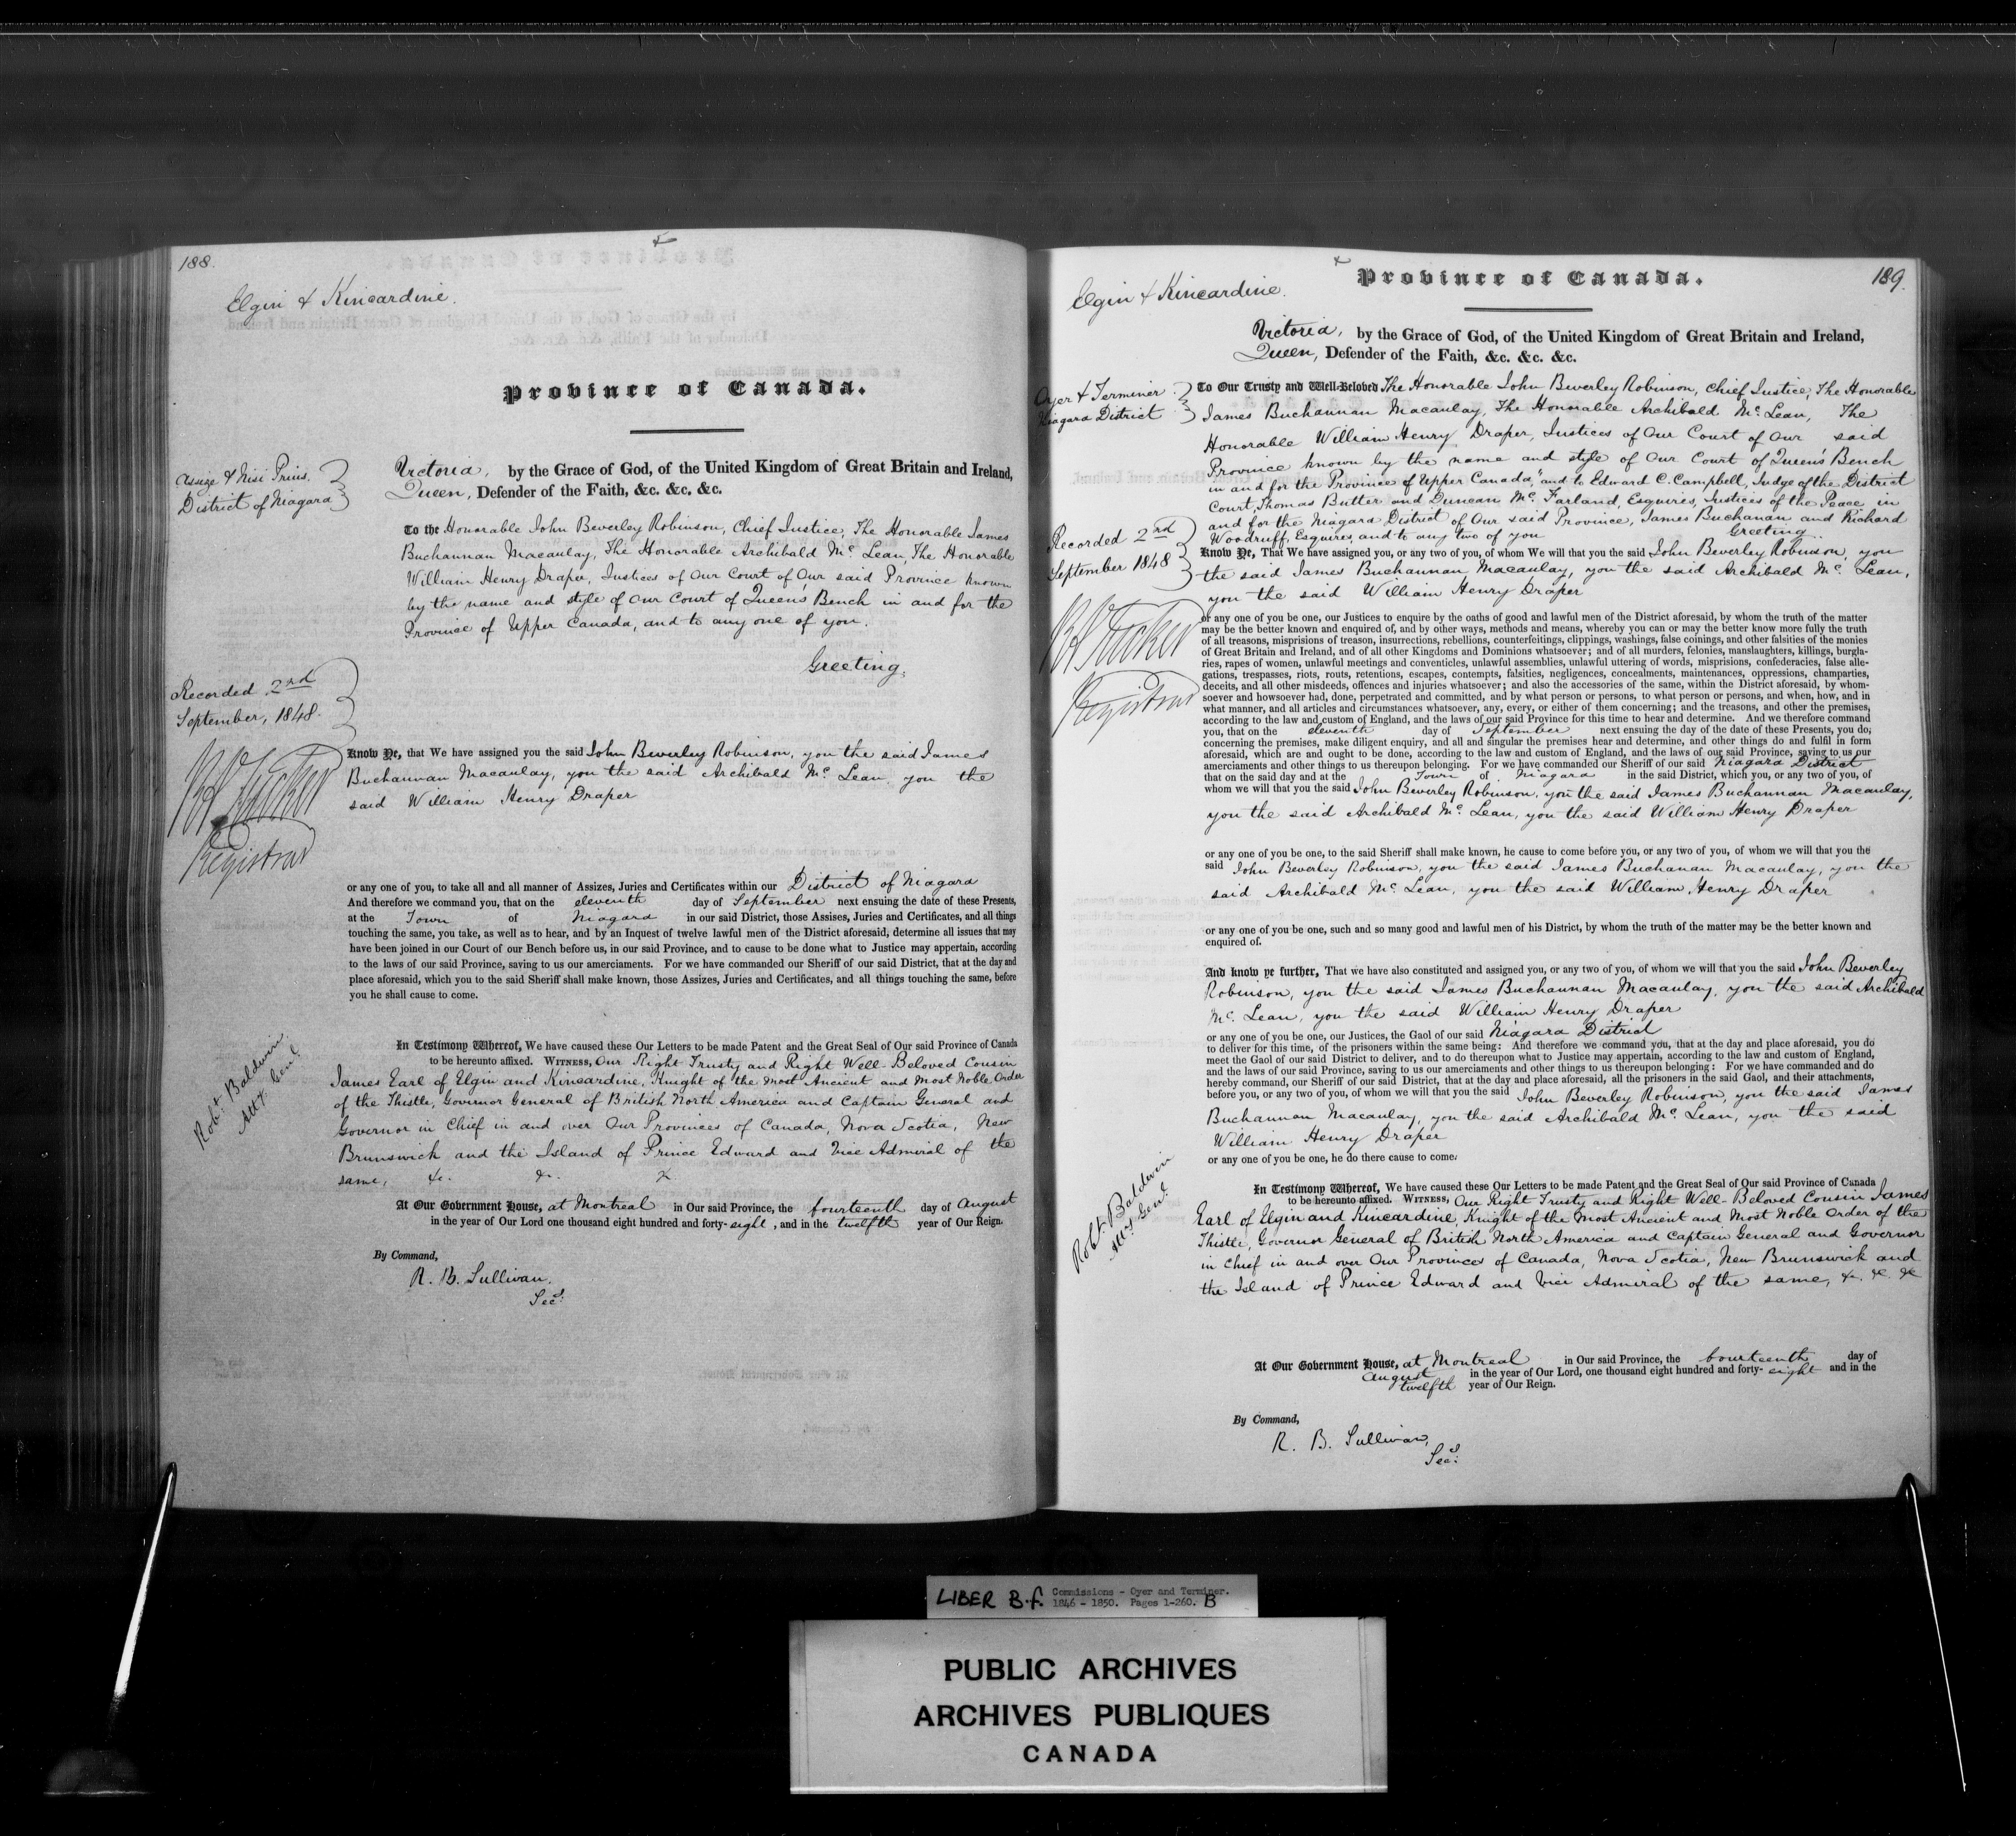 188.
Elgin & Kincardine.
Province of Canada.
Assize & Nisi Prius.
District of Niagara
Victoria, by the Grace of God, of the United Kingdom of Great Britain and Ireland,
Queen, Defender of the Faith, &c. &c. &c.
To the Honorable John Beverley Robinson, Chief Justice, The Honorable James
Buchannan Macaulay, The Honorable Archibald Mc. Lean, The Honorable
William Henry Draper, Justices of Our Court of Our said Province known
by the name and style of Our Court of Queen's Bench in and for the
Province of Upper Canada, and to any one of you.
Greeting.
Recorded 2nd
September, 1848.
Registrar
Know Ye, that We have assigned you the said John Beverley Robinson, you the said James
Buchannan Macaulay, you the said Archibald Mc. Lean, you the
said William Henry Draper
or any one of you, to take all and all manner of Assizes, Juries and Certificates within our District of Niagara
And therefore we command you, that on the eleventh day of September next ensuing the date of these Presents,
at the Town of Niagara in our said District, those Assises, Juries and Certificates, and all things
touching the same, you take, as well as to hear, and by an Inquest of twelve lawful men of the District aforesaid, determine all issues that may
have been joined in our Court of our Bench before us, in our said Province, and to cause to be done what to Justice may appertain, according
to the laws of our said Province, saving to us our amerciaments. For we have commanded our Sheriff of our said District, that at the day and
place aforesaid, which you to the said Sheriff shall make known, those Assizes, Juries and Certificates, and all things touching the same, before
you he shall cause to come.
Robt. Baldwin
Atty. Genl.
In Testimony Whereof, We have caused these Our Letters to be made Patent and the Great Seal of Our said Province of Canada
to be hereunto affixed. Witness, Our Right Trusty and Right Well-Beloved Cousin
James Earl of Elgin and Kincardine, Knight of the Most Ancient and Most Noble Order
of the Thistle, Governor General of British North America and Captain General and
Governor in Chief in and over Our Provinces of Canada, Nova Scotia, New
Brunswick and the Island of Prince Edward and Vice Admiral of the
same, &c. &c. &
At Our Government House, at Montreal in Our said Province, the fourteenth day of August
in the year of Our Lord one thousand eight hundred and forty-eight, and in the twelfth year of Our Reign.
By Command,
R. B. Sullivan,
Secy.
189.
Province of Canada.
Elgin & Kincardine.
Victoria, by the Grace of God, of the United Kingdom of Great Britain and Ireland,
Queen, Defender of the Faith, &c. &c. &c.
Oyer & Terminer
Niagara District
To Our Trusty and Well-Beloved The Honorable John Beverley Robinson, Chief Justice, The Honorable
James Buchannan Macaulay, The Honorable Archibald Mc. Lean, The
Honorable William Henry Draper, Justices of Our Court of Our said
Province known by the name and style of Our Court of Queen's Bench
in and for the Province of Upper Canada," and to Edward C. Campbell, Judge of the District
Court, Thomas Butler and Duncan Mc. Farland, Esquires, Justices of the Peace, in
and for the Niagara District of Our said Province, James Buchanan and Richard
Woodruff, Esquires, and to any two of you Greeting.
Recorded 2nd
September 1848
Registrar
Know Ye, That We have assigned you, or any two of you, of whom We will that you the said John Beverley Robinson, you
the said James Buchannan Macaulay, you the said Archibald Mc. Lean,
you the said William Henry Draper
or any one of you be one, our Justices to enquire by the oaths of good and lawful men of the District aforesaid, by whom the truth of the matter
may be the better known and enquired of, and by other ways, methods and means, whereby you can or may the better know more fully the truth
of all treasons, misprisions of treason, insurrections, rebellions, counterfeitings, clippings, washings, false coinings, and other falsities of the monies
of Great Britain and Ireland, and of all other Kingdoms and Dominions whatsoever; and of all murders, felonies, manslaughters, killings, burgla-
ries, rapes of women, unlawful meetings and conventicles, unlawful assemblies, unlawful uttering of words, misprisions, confederacies, false alle-
gations, trespasses, riots, routs, retentions, escapes, contempts, falsities, negligences, concealments, maintenances, oppressions, champarties,
deceits, and all other misdeeds, offences and injuries whatsoever; and also the accessories of the same, within the District aforesaid, by whom-
soever and howsoever had, done, perpetrated and committed, and by what person or persons, to what person or persons, and when, how, and in
what manner, and all articles and circumstances whatsoever, any, every, or either of them concerning; and the treasons, and other the premises,
according to the law and custom of England, and the laws of our said Province for this time to hear and determine. And we therefore command
you, that on the eleventh day of September next ensuing the day of the date of these Presents, you do,
concerning the premises, make diligent enquiry, and all and singular the premises hear and determine, and other things do and fulfil in form
aforesaid, which are and ought to be done, according to the law and custom of England, and the laws of our said Province, saving to us our
amerciaments and other things to us thereupon belonging. For we have commanded our Sheriff of our said Niagara District
that on the said day and at the Town of Niagara in the said District, which you, or any two of you, of
whom we will that you the said John Beverley Robinson, you the said James Buchannan Macaulay,
you the said Archibald Mc. Lean, you the said William Henry Draper
or any one of you be one, to the said Sheriff shall make known, he cause to come before you, or any two of you, of whom we will that you the
said John Beverley Robinson, you the said James Buchanan Macaulay, you the
said Archibald Mc. Lean, you the said William Henry Draper
or any one of you be one, such and so many good and lawful men of his District, by whom the truth of the matter may be the better known and
enquired of.
And know ye further, That we have also constituted and assigned you, or any two of you, of whom we will that you the said John Beverley
Robinson, you the said James Buchannan Macaulay, you the said Archibald
Mc. Lean, you the said William Henry Draper
or any one of you be one, our Justices, the Gaol of our said Niagara District
to deliver for this time, of the prisoners within the same being: And therefore we command you, that at the day and place aforesaid, you do
meet the Gaol of our said District to deliver, and to do thereupon what to Justice may appertain, according to the law and custom of England,
and the laws of our said Province, saving to us our amerciaments and other things to us thereupon belonging: For we have commanded and do
hereby command, our Sheriff of our said District, that at the day and place aforesaid, all the prisoners in the said Gaol, and their attachments,
before you, or any two of you, of whom we will that you the said John Beverley Robinson, you the said James
Buchannan Macaulay, you the said Archibald Mc. Lean, you the said
William Henry Draper
or any one of you be one, he do there cause to come.
Robt. Baldwin
Atty. Genl.
In Testimony Whereof, We have caused these Our Letters to be made Patent and the Great Seal of Our said Province of Canada
to be hereunto affixed. Witness, Our Right Trusty and Right Well-Beloved Cousin James
Earl of Elgin and Kincardine, Knight of the Most Ancient and Most Noble Order of the
Thistle, Governor General of British North America and Captain General and Governor
in Chief in and over Our Provinces of Canada, Nova Scotia, New Brunswick and
the Island of Prince Edward and Vice Admiral of the same, &c. &c. &c
At Our Government House, at Montreal in Our said Province, the fourteenth day of
August in the year of Our Lord, one thousand eight hundred and forty-eight and in the
twelfth year of Our Reign.
By Command,
R. B. Sullivan,
Secy.
LIBER B.f. Commissions - Oyer and Terminer.
1846 - 1850. Pages 1-260. B
PUBLIC ARCHIVES
ARCHIVES PUBLIQUES
CANADA